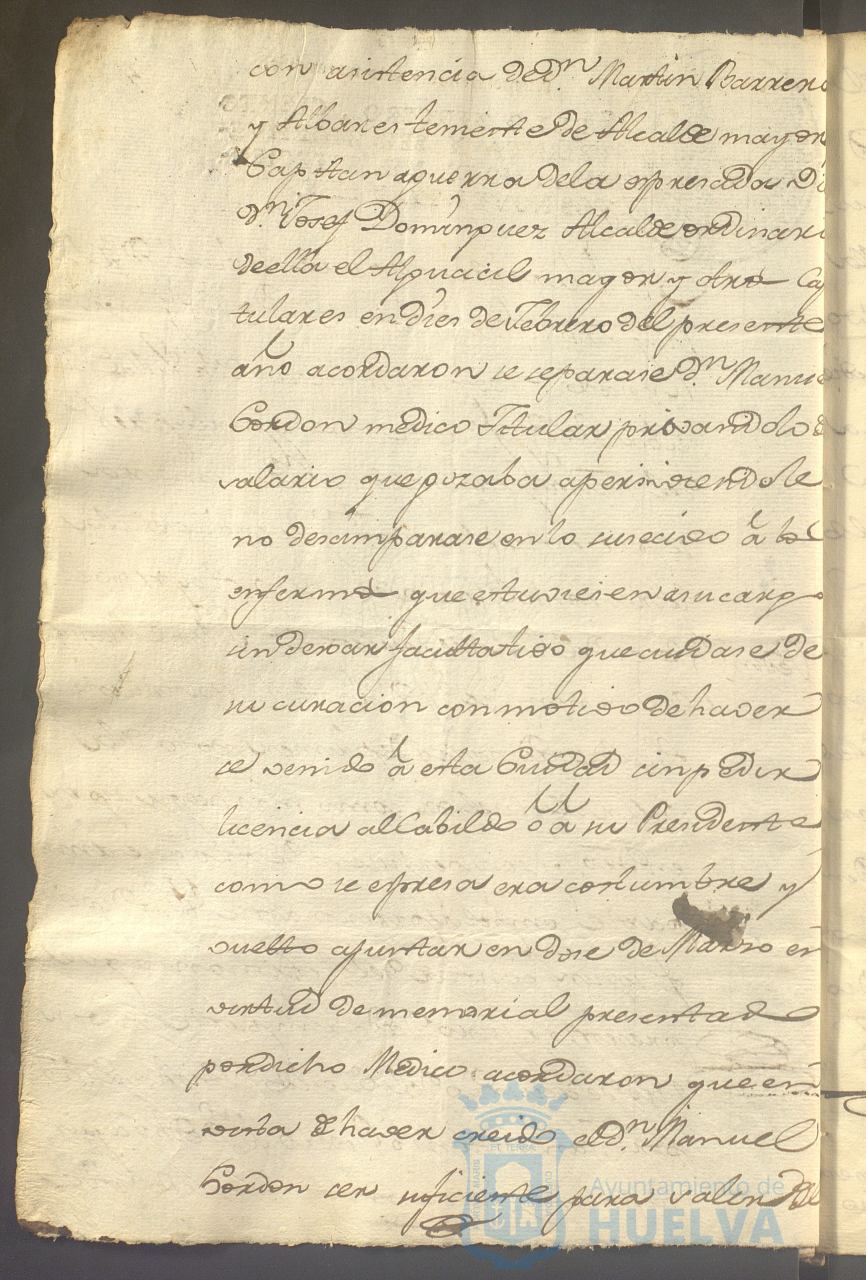 con asistencia de Dn Martin Barrero
y Albares teniente de Alcalde mayor
Capitan aguerra dela espresada
Dn Josef Dominguez Alcalde ordinari
de ella el Alguacil mayor y otros Cap
tulares en dies de Febrero del presente
año acordaron se separase Dn Manue
Gordon medico Titular privandolo d
salario que gozaba aperciviendole
no desamparase en lo sucecivo â los
enfermos que estuviesen asu cargo
sin dexar facultativo que cuidase de
su curacion con motivo de haver
se venido â esta Ciudad sin pedir
licencia al Cabildo ô â su Presidente
como se espresa era costumbre y
vuelto ajuntar en dose de Marzo en
virtud de memorial presentado
por dicho Medico acordaron que en
vista de haver creido el Dn Manuel
Gordon ser suficiente para salir del
Ayuntamiento de
HUELVA